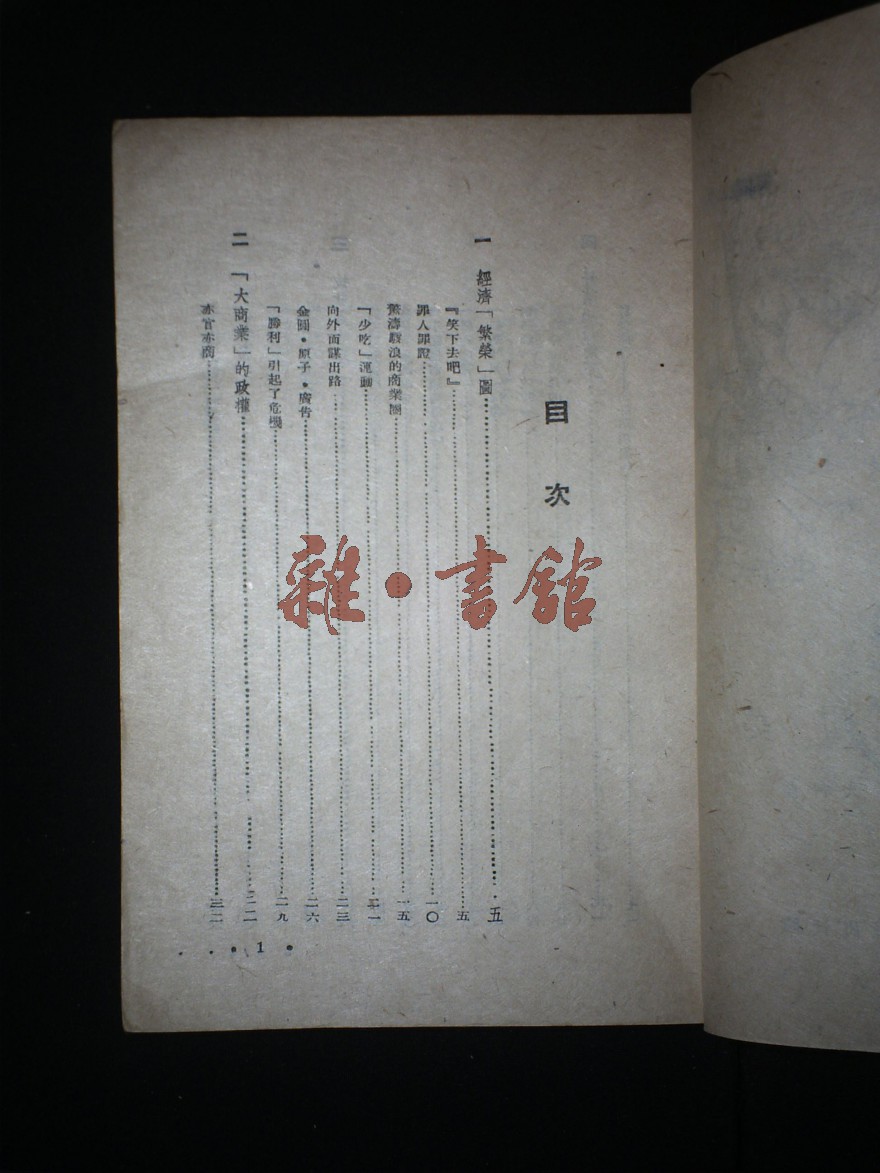 目次
一 經濟「繁榮」圖 五
『笑下去吧』 五
罪人罪證 一〇
驚濤駭浪的商業圈 一五
「少吃」運動 二一
向外面謀出路 二三
金圓•原子•廣告 二六
「勝利」引起了危機 二九
二 「大商業」的政權 三二
亦官亦商 三二
• 1 •
雜•書館